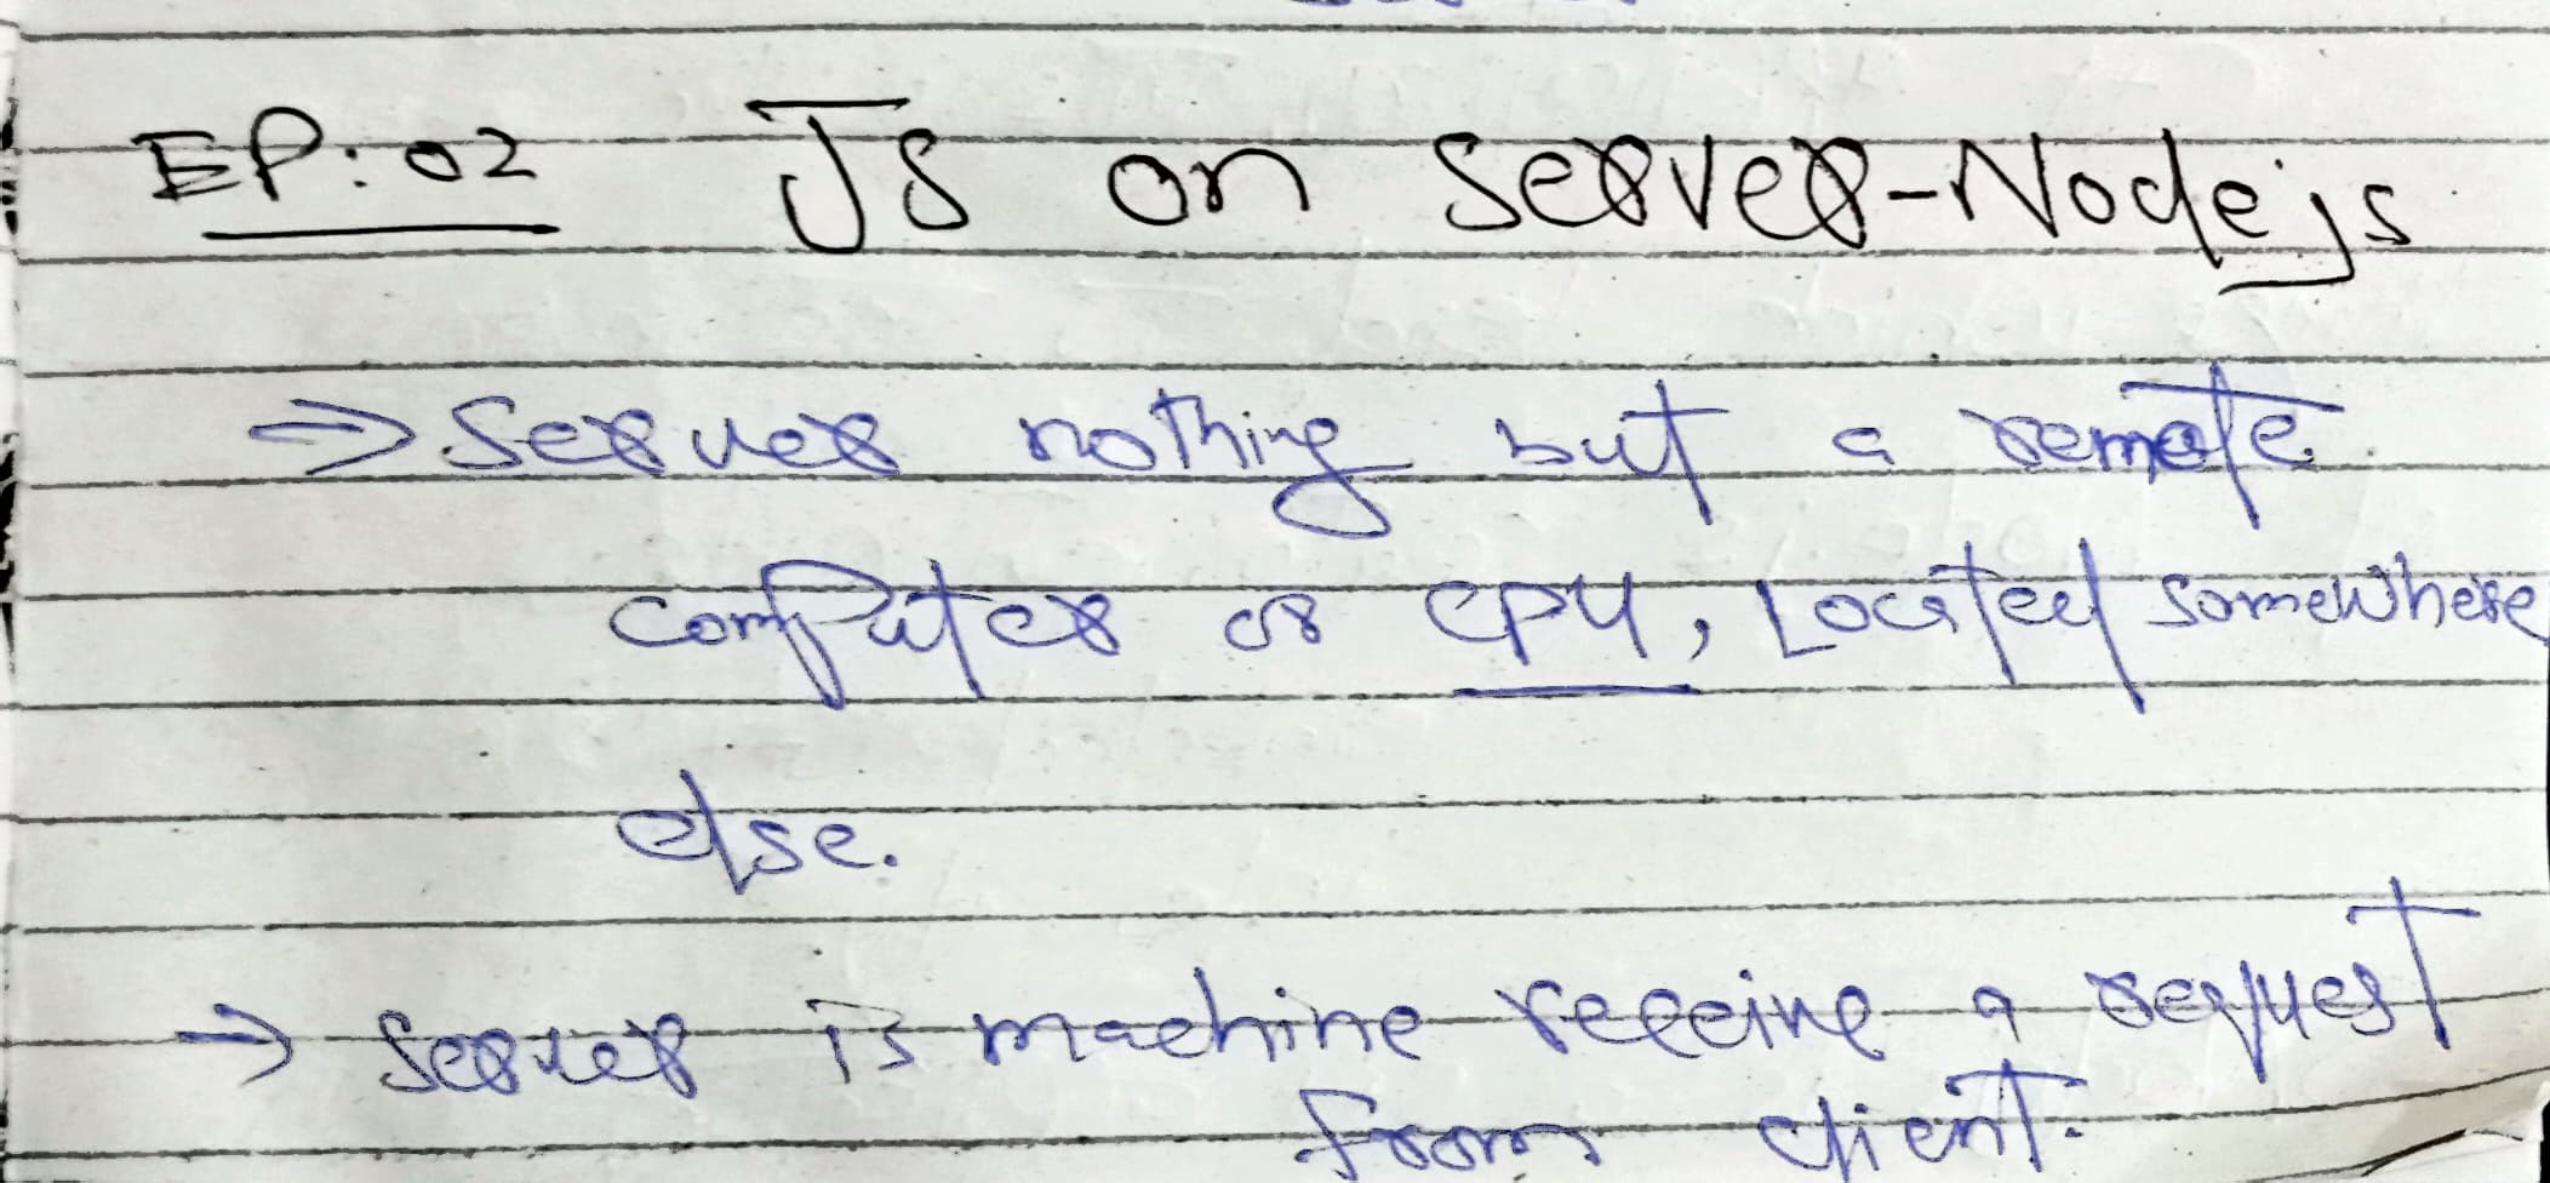 EP:02 JS on Server-Nodejs
→ Server nothing but a remote
computer or CPU, Located somewhere
else.
→ Server is machine receive a request
from client.